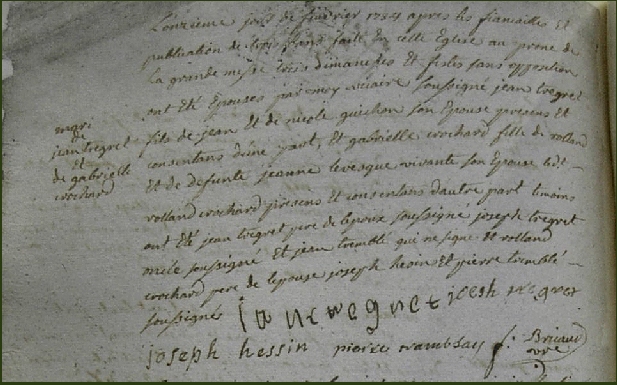 L'onzieme jour de fevrier 1784 apres les fiancailles et
publication de trois bans faite en cette Eglise au prone de
la grande messe trois dimanches et festes sans opposition
ont été Epousés par moy vicaire soussigné jean tregret
mari
de
jean tregret
et
de gabrielle
crochard
fils de jean et de nicole guichon son Epouse presens et
consentans d'une part, et gabrielle crochard fille de rolland
et de defunte jeanne levesque vivante son Epouse ledt
rolland crochard present et consentans d'autre part temoins
ont été jean tregret pere de lepoux soussigné joseph tregret
soussigné et jean tremblé qui ne signe et rolland
crochard pere de lepouse joseph hesin et pierre tremblé
soussignés
joseph hessin pierre tramblay